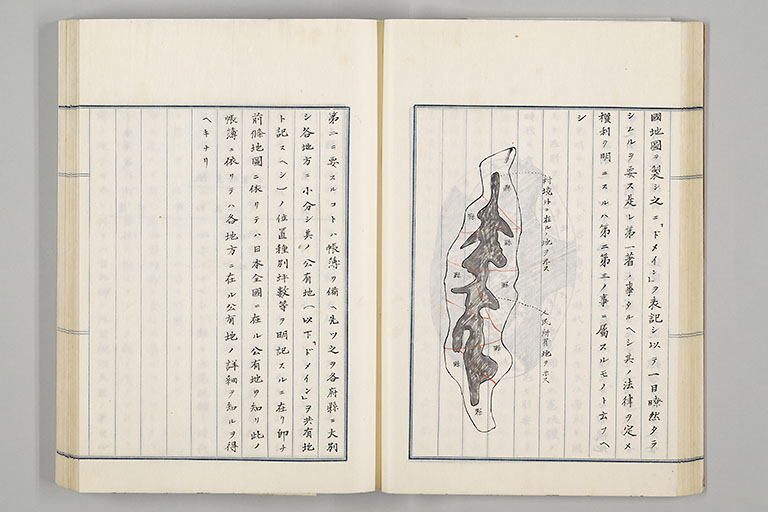 國地圖ヲ製シ之ニ「ドメイン」ヲ表記シ以テ一目瞭然タラ
シムルヲ要ス是レ第一著ノ事タルヘシ其ノ法律ヲ定メ
權利ヲ明ニスルハ第二第三ノ事ニ属スルモノト云フヘ
シ
村境外ニ在ル地ヲ示ス
人民所有地ヲ示ス
縣
縣
縣
縣
縣
縣
縣
縣
縣
第二ニ要スルコトハ帳簿ヲ備ヘ先ツ之ヲ各府縣ニ大別
シ各地方ニ小分シ其ノ公有地(以下「ドメイン」ヲ共有地
ト記スヘシ)ノ位置種別坪數等ヲ明記スルニ在リ卽チ
前條地圖ニ依リテハ日本全國ニ在ル公有地ヲ知リ此ノ
帳簿ニ依リテハ各地方ニ在ル公有地ノ詳細ヲ知ルヲ得
ヘキナリ